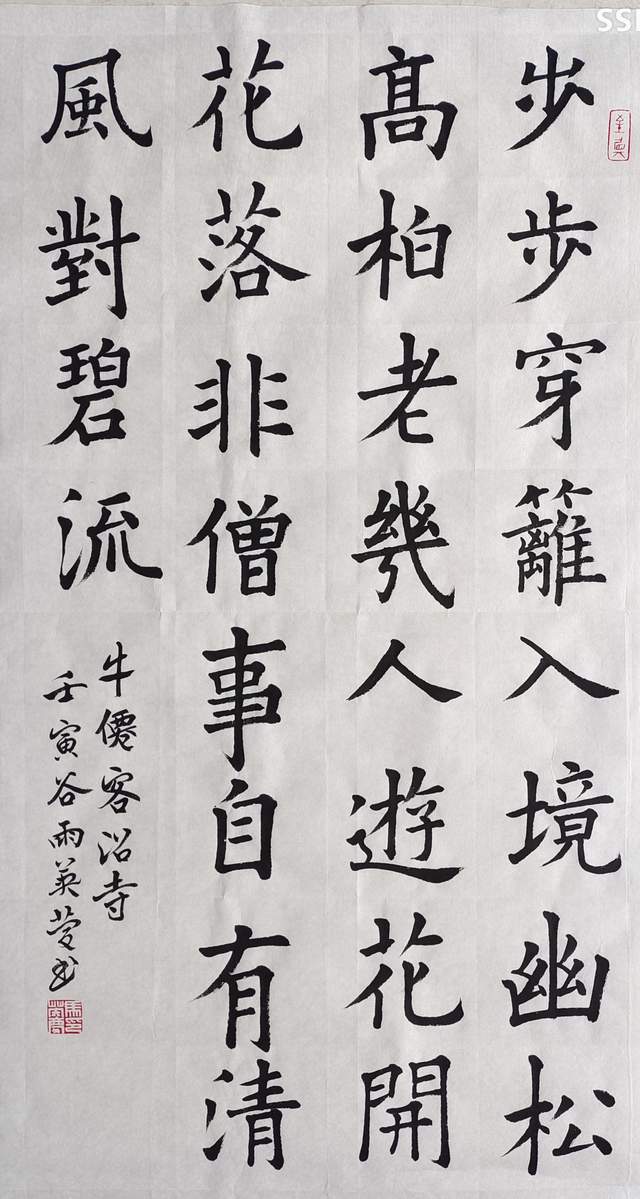 步步穿籬入境幽松
髙柏老幾人遊花開
花落非僧事自有清
風對碧流
牛僊客 寺
壬寅谷雨英 书